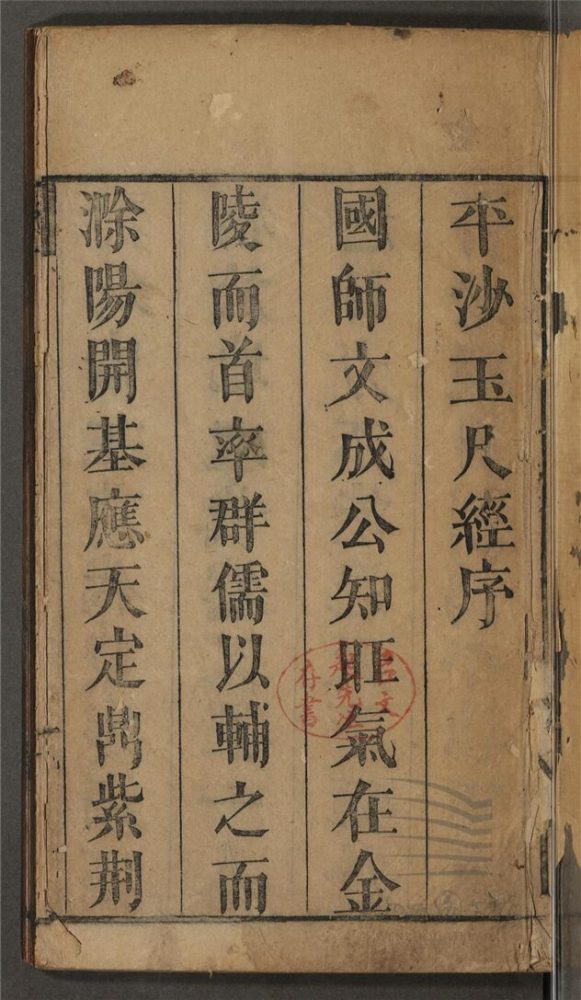 平沙玉尺經序
國師文成公知旺氣在金
陵而首率群儒以輔之而
滁陽開基應天定鼎紫荆